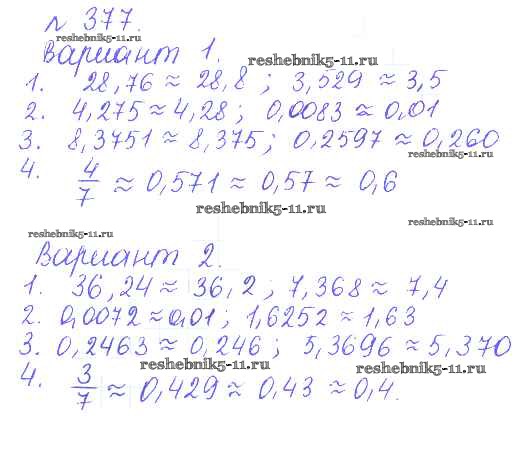 № 377.
reshebnik5-11.ru
Вариант 1.
reshebnik5-11.ru
1. 28,76 ≈ 28,8 ; 3,529 ≈ 3,5
2. 4,275 ≈ 4,28 ; 0,0083 ≈ 0,01
3. 8,3751 ≈ 8,375; 0,2597 ≈ 0,260
reshebnik5-11.ru
4. 4/7 ≈ 0,571 ≈ 0,57 ≈ 0,6
reshebnik5-11.ru
reshebnik5-11.ru
reshebnik5-11.ru
Вариант 2.
1. 36,24 ≈ 36,2 ; 7,368 ≈ 7,4
2. 0,0072 ≈ 0,01 ; 1,6252 ≈ 1,63
3. 0,2463 ≈ 0,246 ; 5,3696 ≈ 5,370
reshebnik5-11.ru
reshebnik5-11.ru
4. 3/7 ≈ 0,429 ≈ 0,43 ≈ 0,4.